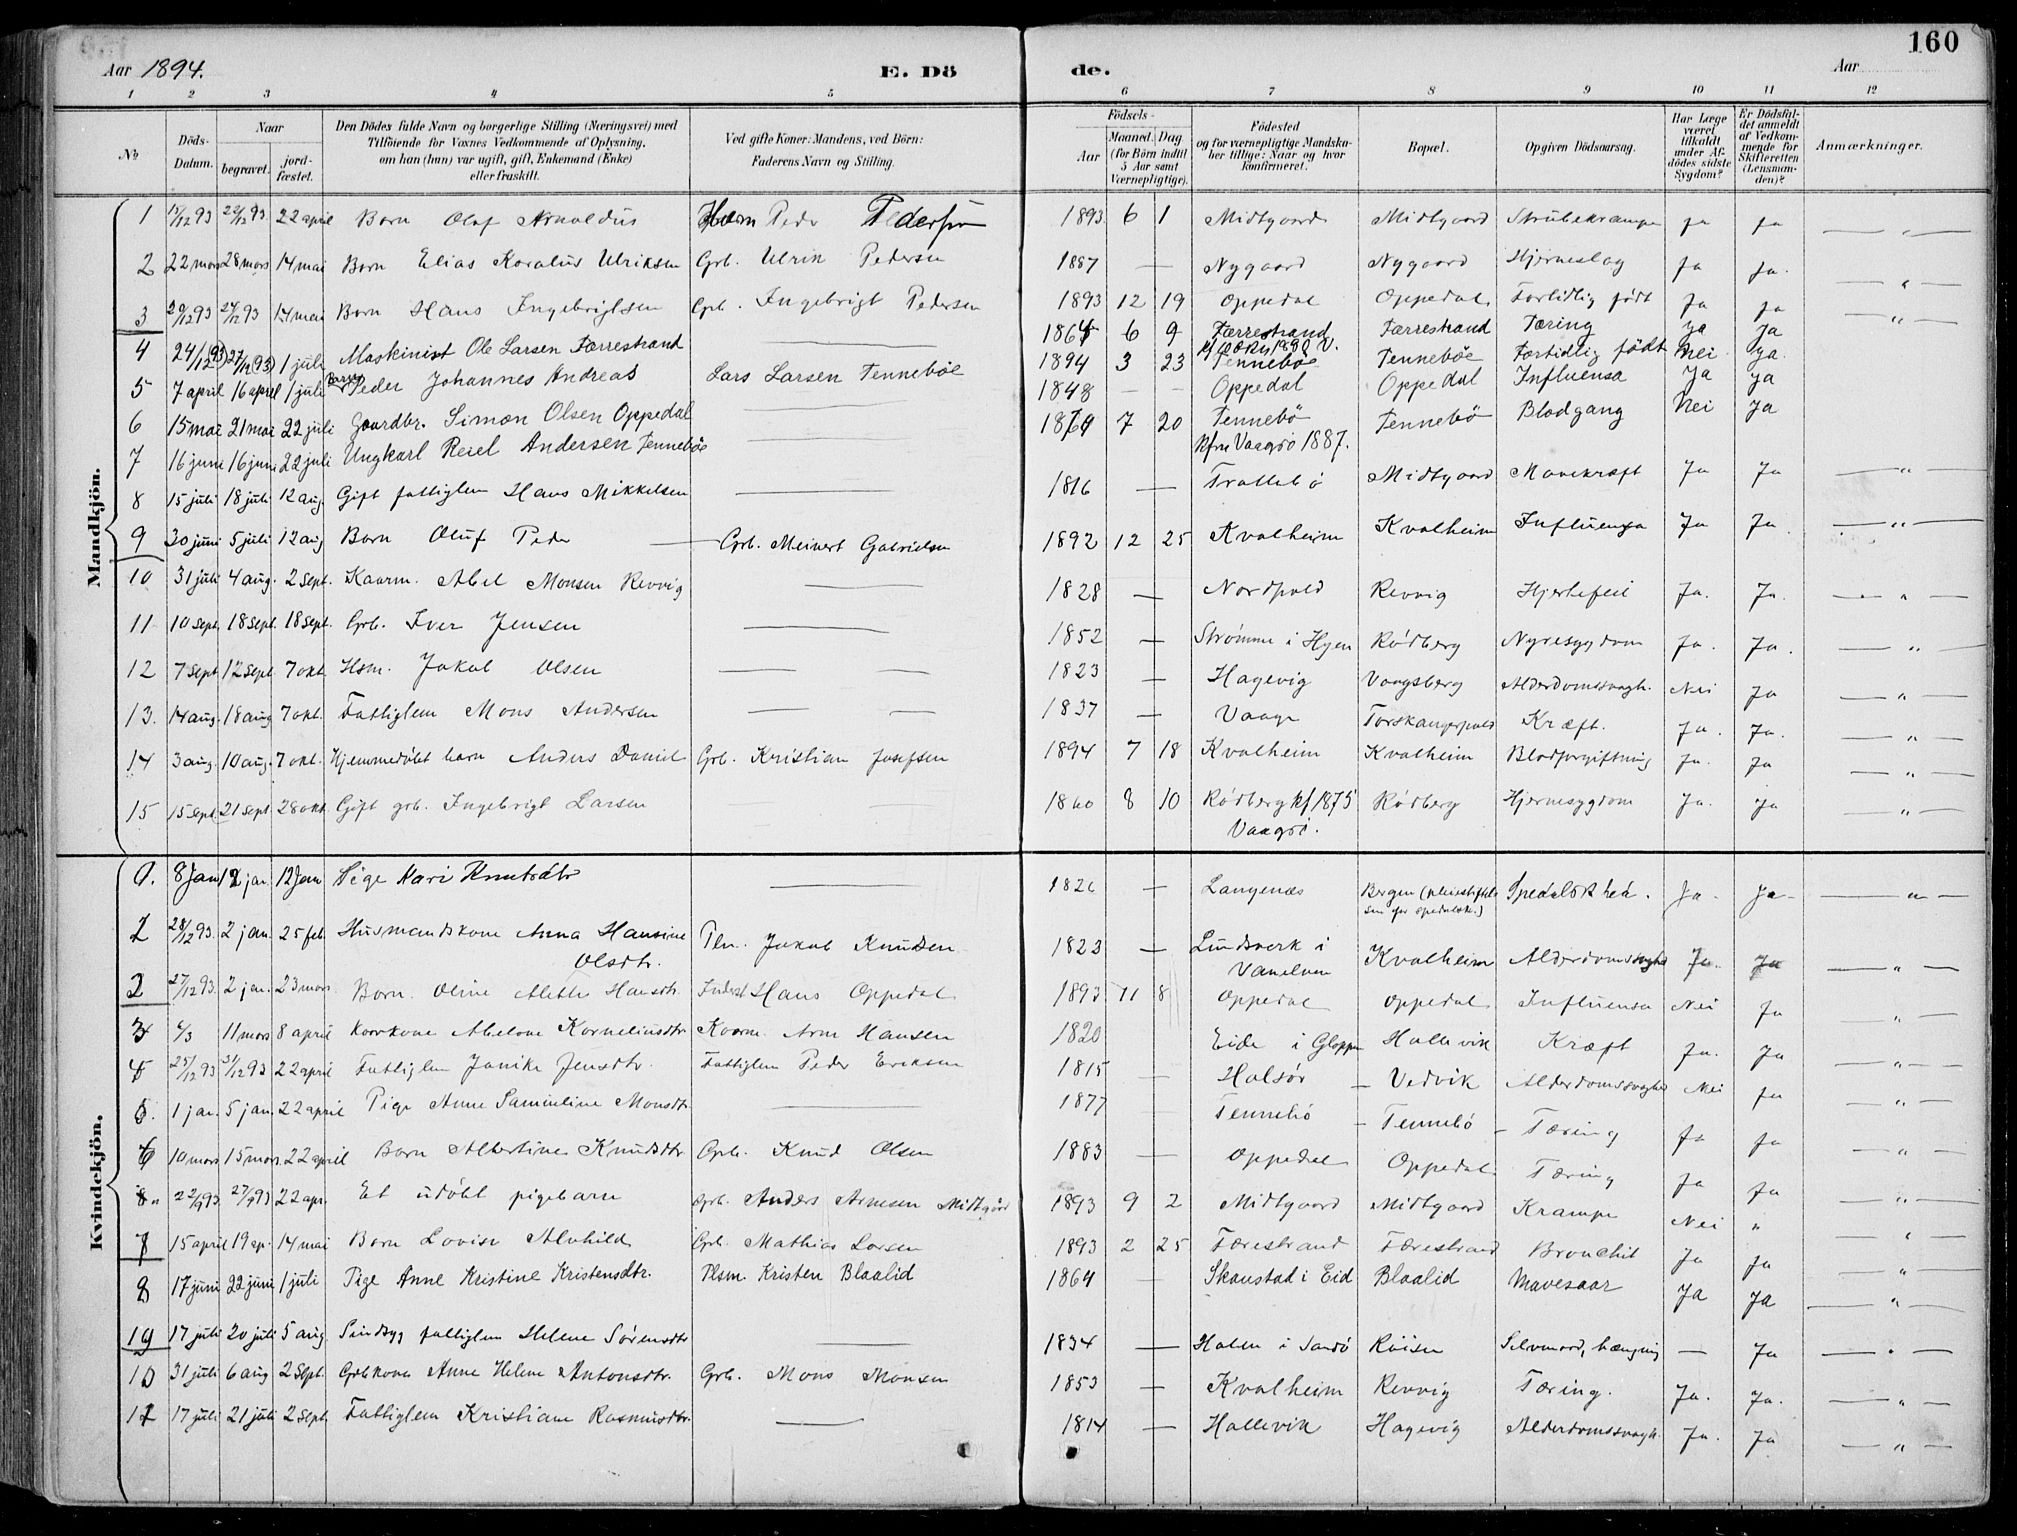 160
Aar 1894. E. Dö de. Aar
1 2 3 4 5 6 7 8 9 10 11 12
№ Döds-Datum. Naar begravet. jordfæstet. Den Dödes fulde Navn og borgerlige Stilling (Næringsvei) med Tilföiende for Voxnes Vedkommende af Oplysning, om han (hun) var ugift, gift, Enkemand (Enke) eller fraskilt. Ved gifte Koner: Mandens, ved Börn: Faderens Navn og Stilling. Födsels- Aar Maaned. Dag (for Börn indtil 5 Aar samt Værnepligtige). Födested og for værnepligtige Mandskaber tillige: Naar og hvor konfirmeret. Bopæl. Opgiven Dödsaarsag. Har Læge været tilkaldt under Afdödes sidste Sygdom? Er Dödsfaldet anmeldt af Vedkommende for Skifteretten (Lensmanden)? Anmærkninger.
Mandkjön.
1 15/12 93 20/12 93. 22 april Barn Olaf Arnoldus Peder Pedersen 1893 6 1 Midtgaard Midtgaard Strubekrampe ja ja — " —
2 22 mars 28 mars 14 mai Barn Elias Koralus Ulriksen Grb. Ulrik Pedersen 1887 — Nygaard Nygaard Hjerneslag Ja Ja. "
3 20/12 93 24/12 93 14 mai Barn Hans Ingebrigtsen Grb. Ingebrigt Pedersen 1893 12 19 Oppedal Oppedal Fortidlig födt Ja ja — " —
4 24/12 (93) 27/12 (93) 1 juli Maskinist Ole Larsen Færrestrand — 1864 6 9 Færrestrand Færrestrand Tæring Ja Ja
5 7 april 16 april 1 juli Barn Peder Johannes Andreas Lars Larsen Tenneböe 1894 3 23 Tenneböe Tenneböe Fortidlig födt Nei Ja.
6 15 mai 21 mai 22 juli Gaardbr. Simon Olsen Oppedal — 1848 — — Oppedal Oppedal Influensa Ja Ja
7 16 juni 16 juni 22 juli Ungkarl Reiel Andersen Tennebøe — 7 20 Tennebø Tennebø Blodgang Nei Ja
Vaagsö 1887.
8 15 juli 18 juli 12 aug. Gift fattiglem Hans Mikkelsen — 1816 — Trollebö Midtgaard Mavekræft Ja Ja — " —
9 30 juni 5 juli 12 aug Barn Oluf Peder — Grb. Meinert Gabrielsen 1892 12 25 Kvalheim Kvalheim Influenza Ja Ja. — " —
10 31 juli 4 aug. 2 sept. Kaarm. Abel Monsen Revvig — 1828 — Nordpold Revvig Hjertefeil Ja. Ja. — " —
11 10 sept. 18 sept. 18 sept. Grb. Iver Jensen — 1852 — Strømme i Hyen Rödberg Nyresygdom Ja. Ja. — " —
12 7 sept 12 sept 7 okt. Hsm. Jakob Olsen — — 1823 — Hagevig Vaagsberg Alderdomssvagh. Nei Ja — " —
13. 14 aug. 18 aug 7 okt. Fattiglem Mons Andersen — — 1837 — Vaage Torskangerpold Kræft. Ja. Ja. — " —
14 3 aug. 10 aug. 7 okt. Hjemmedöbt barn Anders Daniel Grb. Kristian Josefsen 1894 7 18 Kvalheim Kvalheim Blodforgiftning Ja. Ja — " —
15 15 sept. 21 sept. 28 okt. Gift grb. Ingebrigt Larsen — 1860 8 10 Rödberg kf 1875 Rödberg Hjernesygdom Ja. Ja — " —
Vaagsö.
Kvindekjön.
1. 8 Jan 12 jan. 12 Jan Pige Kari Knutsdtr — 1826 — Langenæs Bergen (pleiestiftelsen for spedalsk.) Spedalsk hed. Ja. Ja. — " —
2 28/12 93. 2 jan. 25 feb. Husmandskone Anna Hansine Pln. Jakob Knudsen 1823 — Lundsverk i Kvalheim Alderdomssvaghed Ja. Ja — " —
Olsdtr. Vanelven
2 27/12 93. 2 jan. 23 mars. Barn Oline Alette Hansdtr. Inderst Hans Oppedal 1893 11 8 Oppedal Oppedal Influensa Nei Ja — " —
3 4/3 11 mars 8 april Korkone Abelone Korneliusdtr Kaarm. Arne Hansen 1820 Eide i Gloppen Hallevik Kræft Ja. Ja — " —
4 25/12 93 31/12 93 22 april Fattiglem Janike Jensdtr. Fattiglem Peder Eriksen 1815 — Halsör — Vedvik Alderdomssvaghed Nei Ja — " —
5. 1 jan. 5 jan. 22 april Pige Anne Samueline Monsdtr — 1877 — Tennebö — Tennebö — Tæring Ja Ja
6 10 mars 15 mars. 22 april Barn Albertine Knudsdtr Grb. Knud Olsen 1883 — Oppedal Oppedal Tæring Ja Ja — " —
8. 22/9 93. 27/9 93 22 apr. Et udöbt pigebarn Grb. Anders Arnesen Midtgård 1893 9 2 Midtgaard Midtgaard Krampe Nei " — " —
7 15 april 19 ap. 14 mai Barn Lovise Alvhild Grb. Mathias Larsen 1893 2 25 Færestrand Færestrand Bronchit Ja Ja — " —
8 17 juni 22 juni 1 juli Pige Anne Kristine Kristensdtr. Plsm. Kristen Blaalid 1864 — Skaustad i Eid Blaalid Mavesaar Ja Ja — " —
9 17 juli 20 juli 5 aug. Sindsyg fattiglem Helene Sørensdtr — 1834 — Holen i Sandö Röisen Selvmord, hængning — Ja — " —
10 31 juli 6 aug 2 sept. Grbkone Anne Helene Antonsdtr. Grb. Mons Monsen 1853 — Kvalheim Revvig Tæring. Ja. Ja. — " —
11 17 juli 21 juli 2 sept. Fattiglem Kristiane Rasmusdtr. — 1814 — Hallevik Hagevig Alderdomssvagh. Ja. Ja — " —